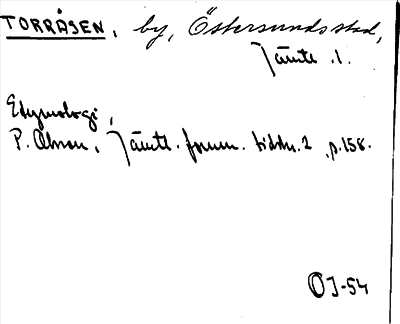 TORRÅSEN, by, Östersunds stad,
Jämtl. l.
Etymologi,
P. Olsson, Jämtl. fornm. tidskr. 2, p. 158.
OJ-54